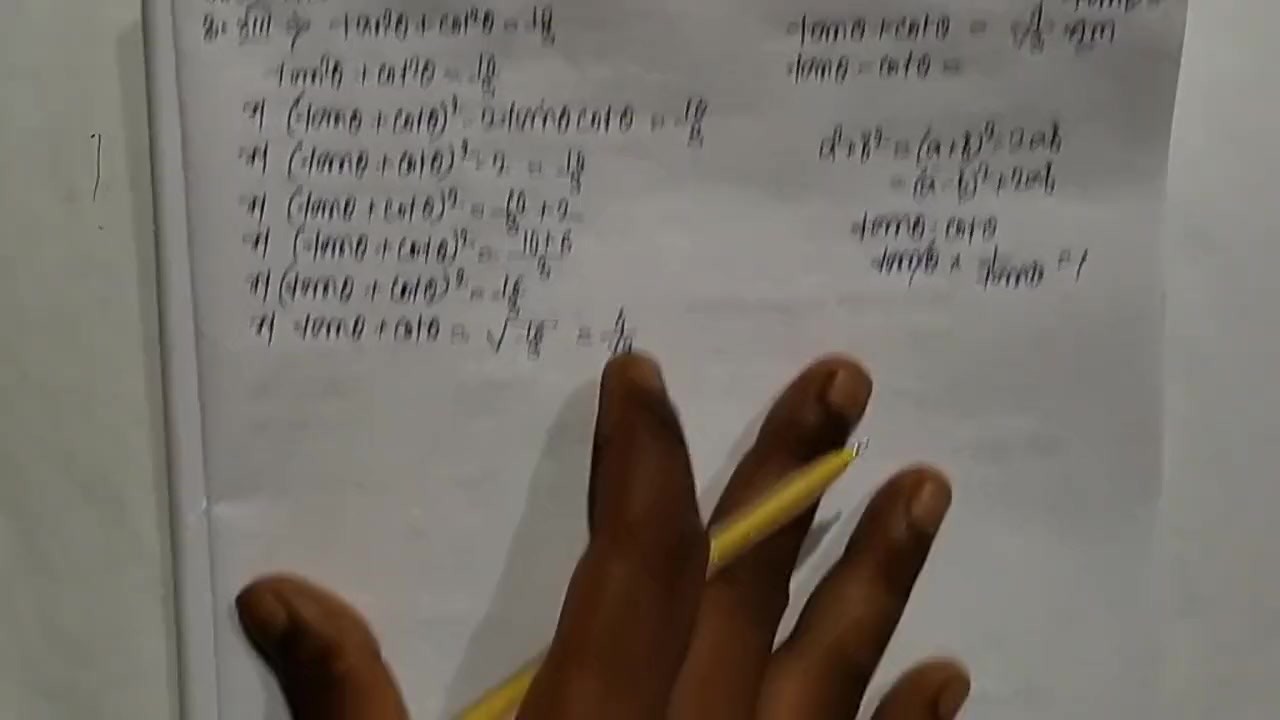 tan²θ + cot²θ = 10/3
tan²θ + cot²θ = 10/3
⇒ (tanθ + cotθ)² - 2 tanθ cotθ = 10/3
⇒ (tanθ + cotθ)² - 2 = 10/3
⇒ (tanθ + cotθ)² = 10/3 + 2
⇒ (tanθ + cotθ)² = 10+6/3
⇒ (tanθ + cotθ)² = 16/3
⇒ tanθ + cotθ = √16/3 = 4/√3
tanθ + cotθ =
tanθ - cotθ =
a²+b² = (a+b)² - 2ab
= (a-b)² + 2ab
tanθ · cotθ
tanθ × 1/tanθ = 1